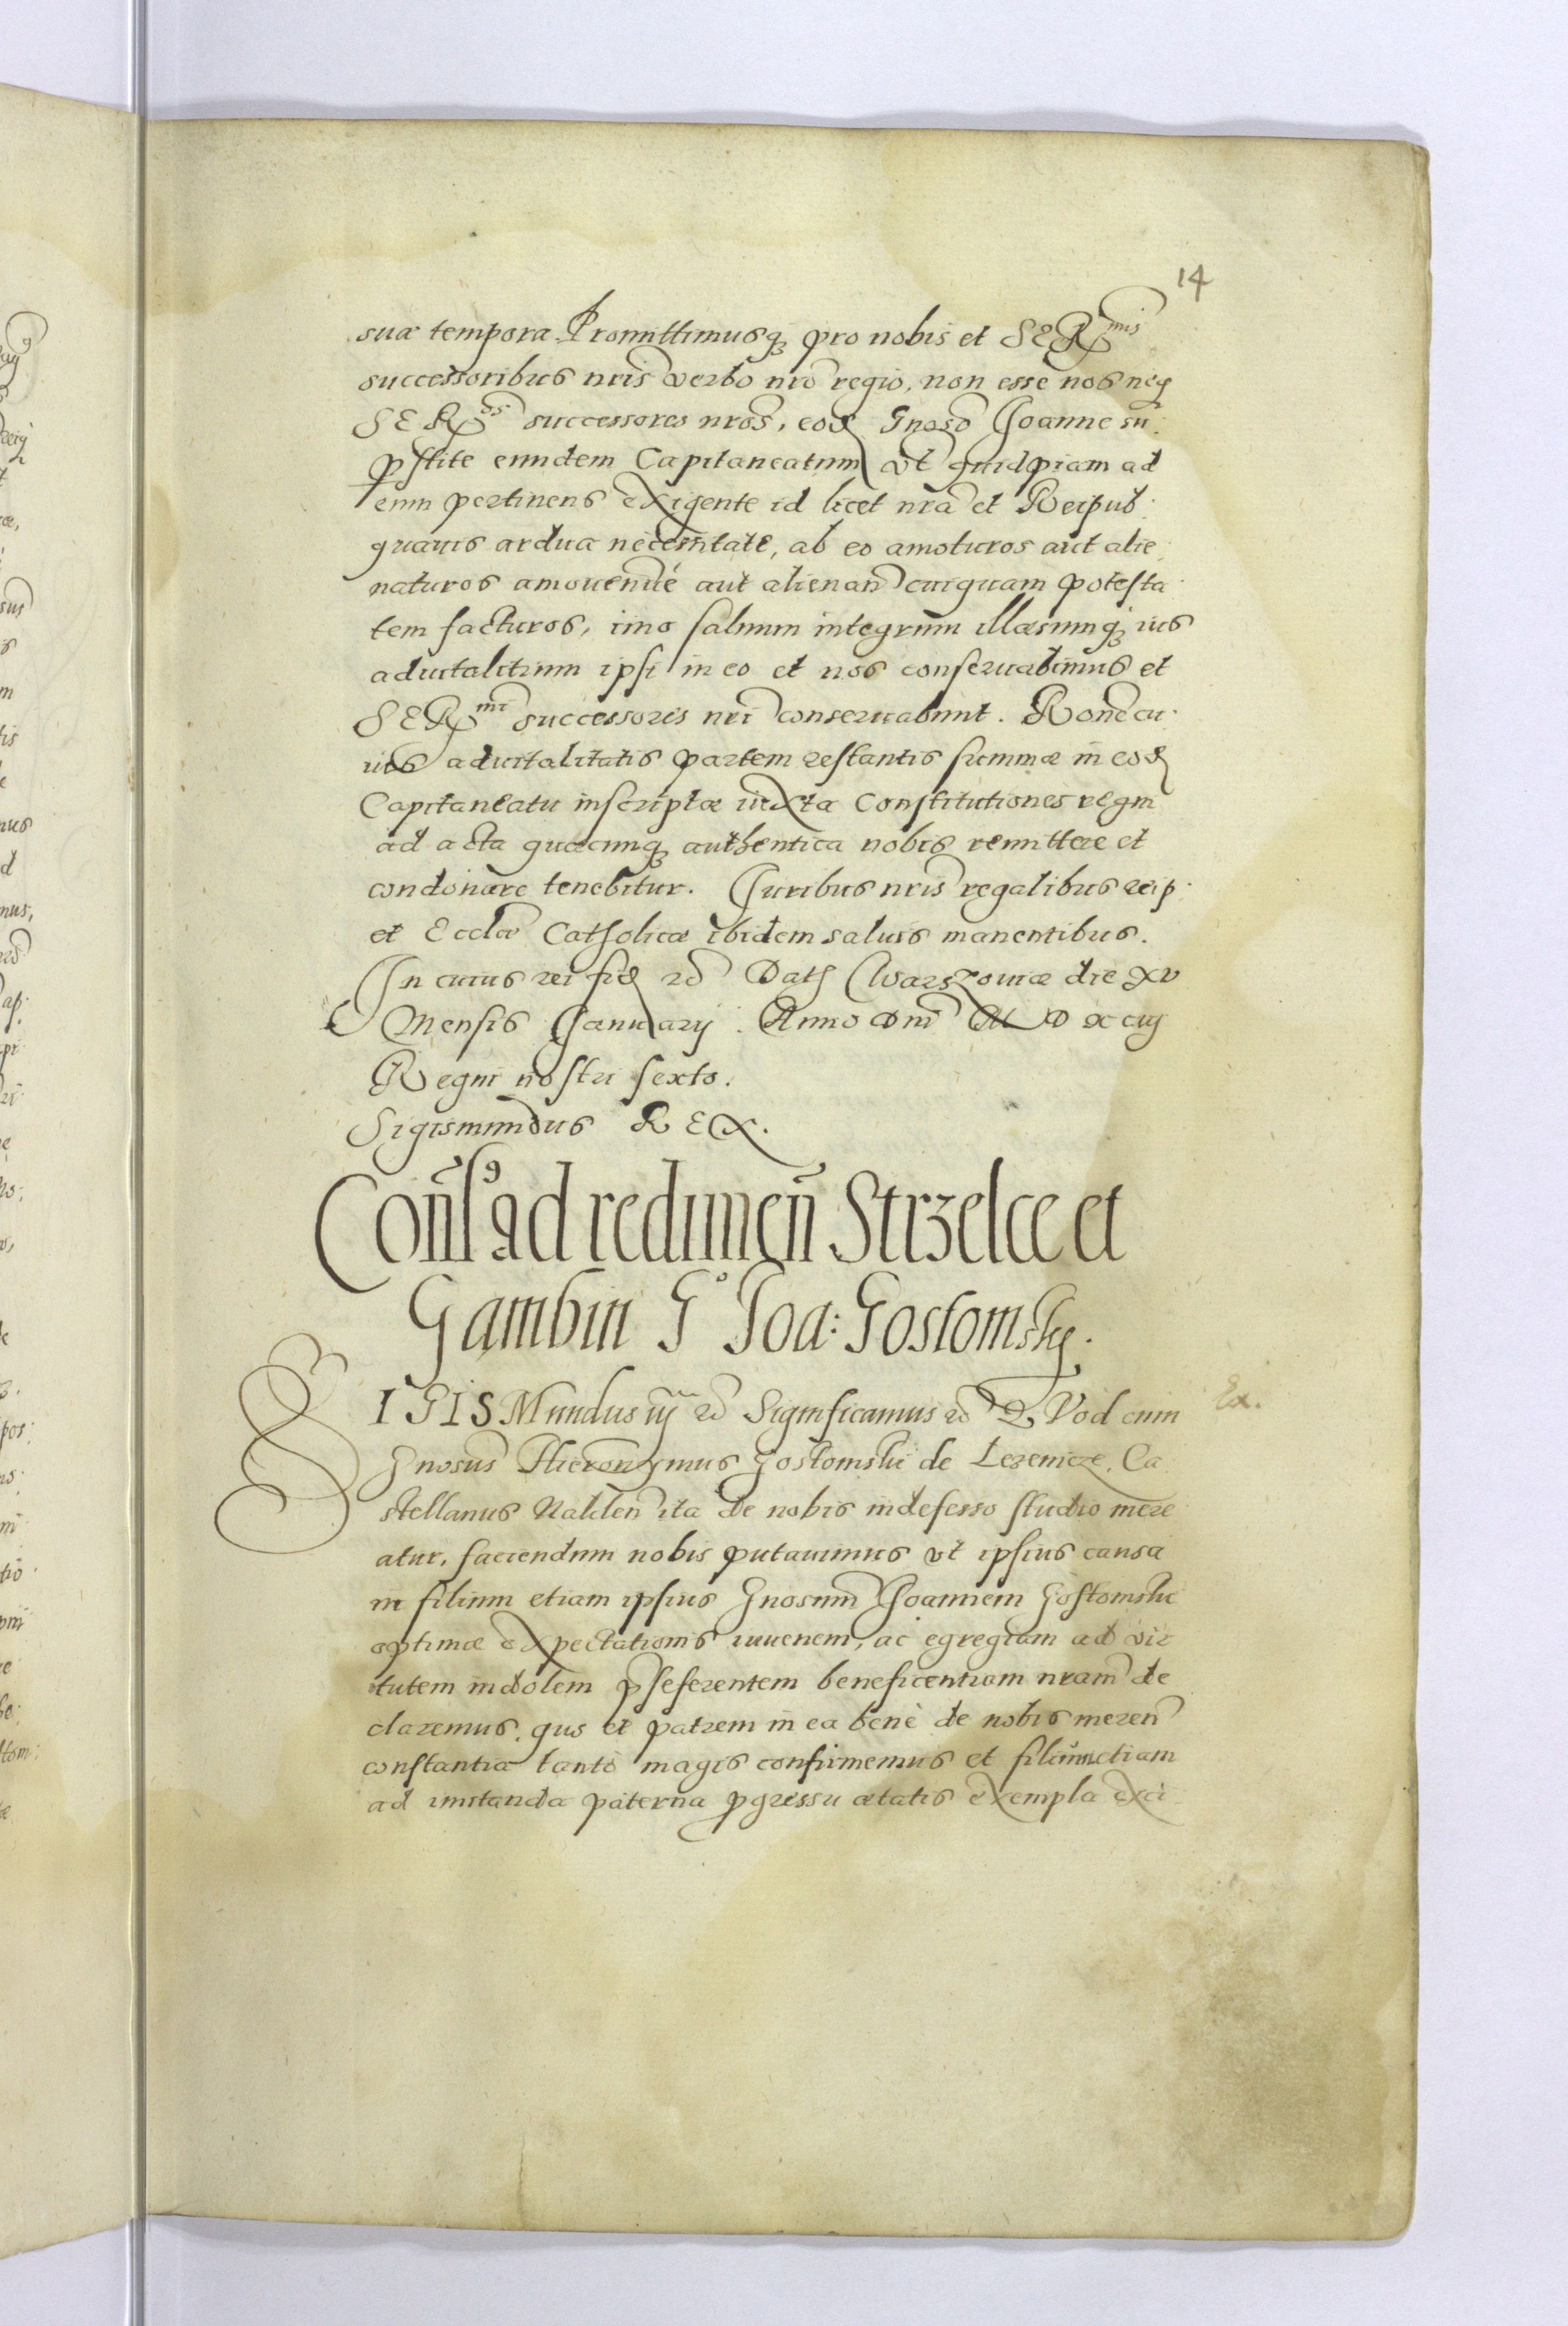 14
suæ tempora. Promittimusq; pro nobis et SERmis
successoribus nris verbo nro regio, non esse nos neq
SERos successores nros, eod Gnoso Joanne su:
pstite eundem Capitaneatum vt quidpiam ad
eum pertinens exigente id licet nra et Reipub:
quauis ardua necessitate, ab eo amoturos aut alie:
naturos amouendi aut alienan cuiquam potesta:
tem facturos, imo saluum integrum illæsumq; ius
aduitalitium ipsi in eo et nos conseruabimus et
SERmi successores nri conseruabunt. Rone cu:
ius aduitalitatis partem restantis summæ in eod
Capitaneatu inscriptæ iuxta Constitutiones regni
ad acta quæcunq; authentica nobis remittere et
condonare tenebitur. Juribus nris regalibus reip:
et Ecclæ Catholicæ ibidem saluis manentibus.
In cuius rei fid &c Dat Warszouiæ die xv
Mensis Januarij. Anno Dni M D XCiij
Regni nostri sexto.
Sigismundus REX.
Cons ad redimen Strzelce et
Gambin Go Joa: Gostomsky.
SIGISMundus iij &c Significamus &c Quod cum
Ex.
Gnosus Hieronymus Gostomski de Lezenicze, Ca
stellanus Naklen ita de nobis indefesso studio mere
atur, faciendum nobis putauimus vt ipsius causa
in filium etiam ipsius Gnosum Joannem Gostomski
optimæ expectationis iuuenem, ac egregiam ad vir
tutem indolem pseferentem beneficentiam nram de
claremus, quo et patrem in ea bene de nobis meren
constantia tanto magis confirmemus et filium etiam
ad imitanda paterna pgressu ætatis exempla exci: